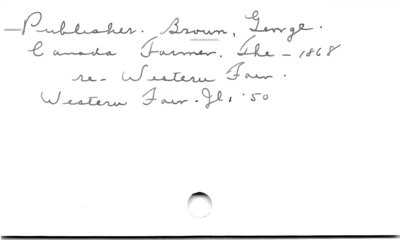 — Publisher. Brown, George.
Canada Farmer. The - 1868
re- Western Fair.
Western Fair. Jl. '50